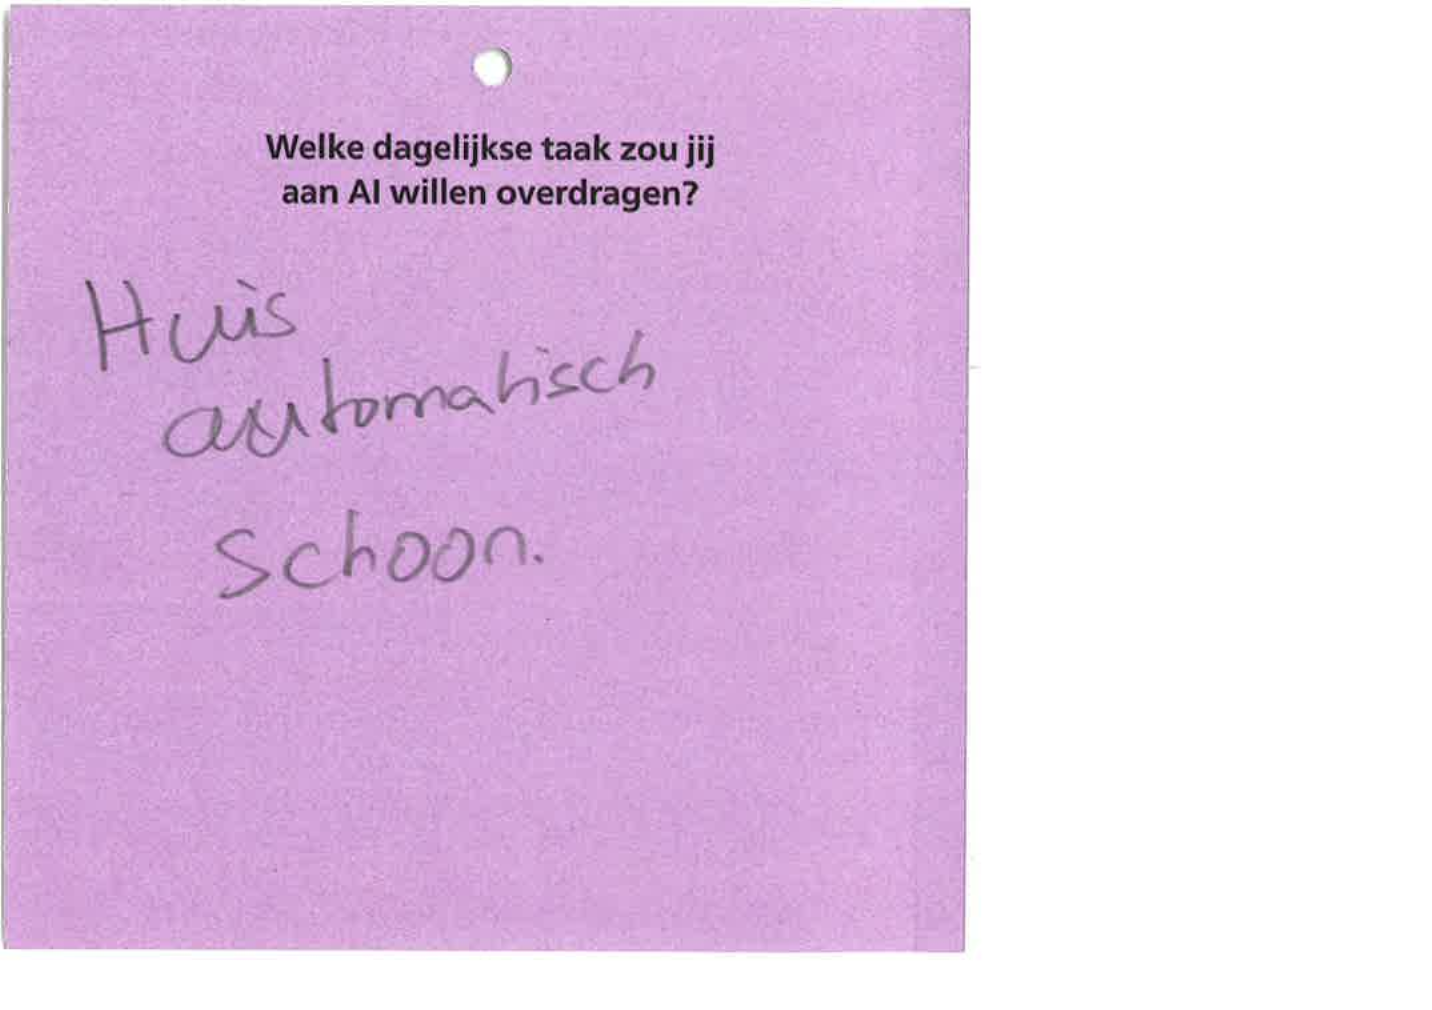 Welke dagelijkse taak zou jij
aan AI willen overdragen?
Huis
automatisch
schoon.